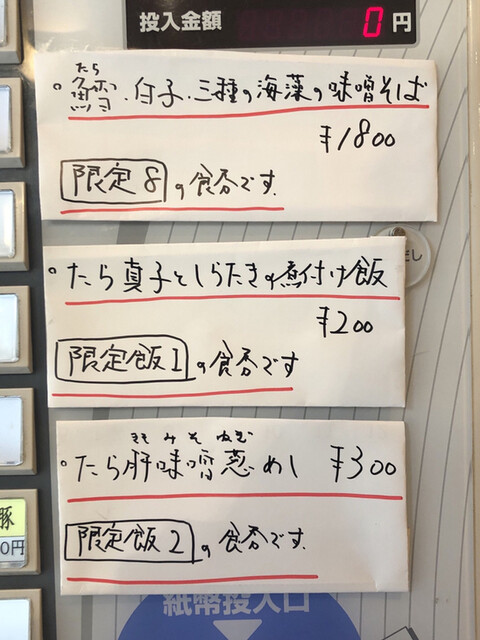 投入金額 0円
たら
。鱈.白子.三種の海藻の味噌そば
¥1800
限定8の食券です.
。たら真子としらたきの煮付け飯
¥200
限定飯1の食券です
きもみそねぎ
。たら肝味噌葱めし ¥300
限定飯2の食券です.
豚
0円
紙幣投入口